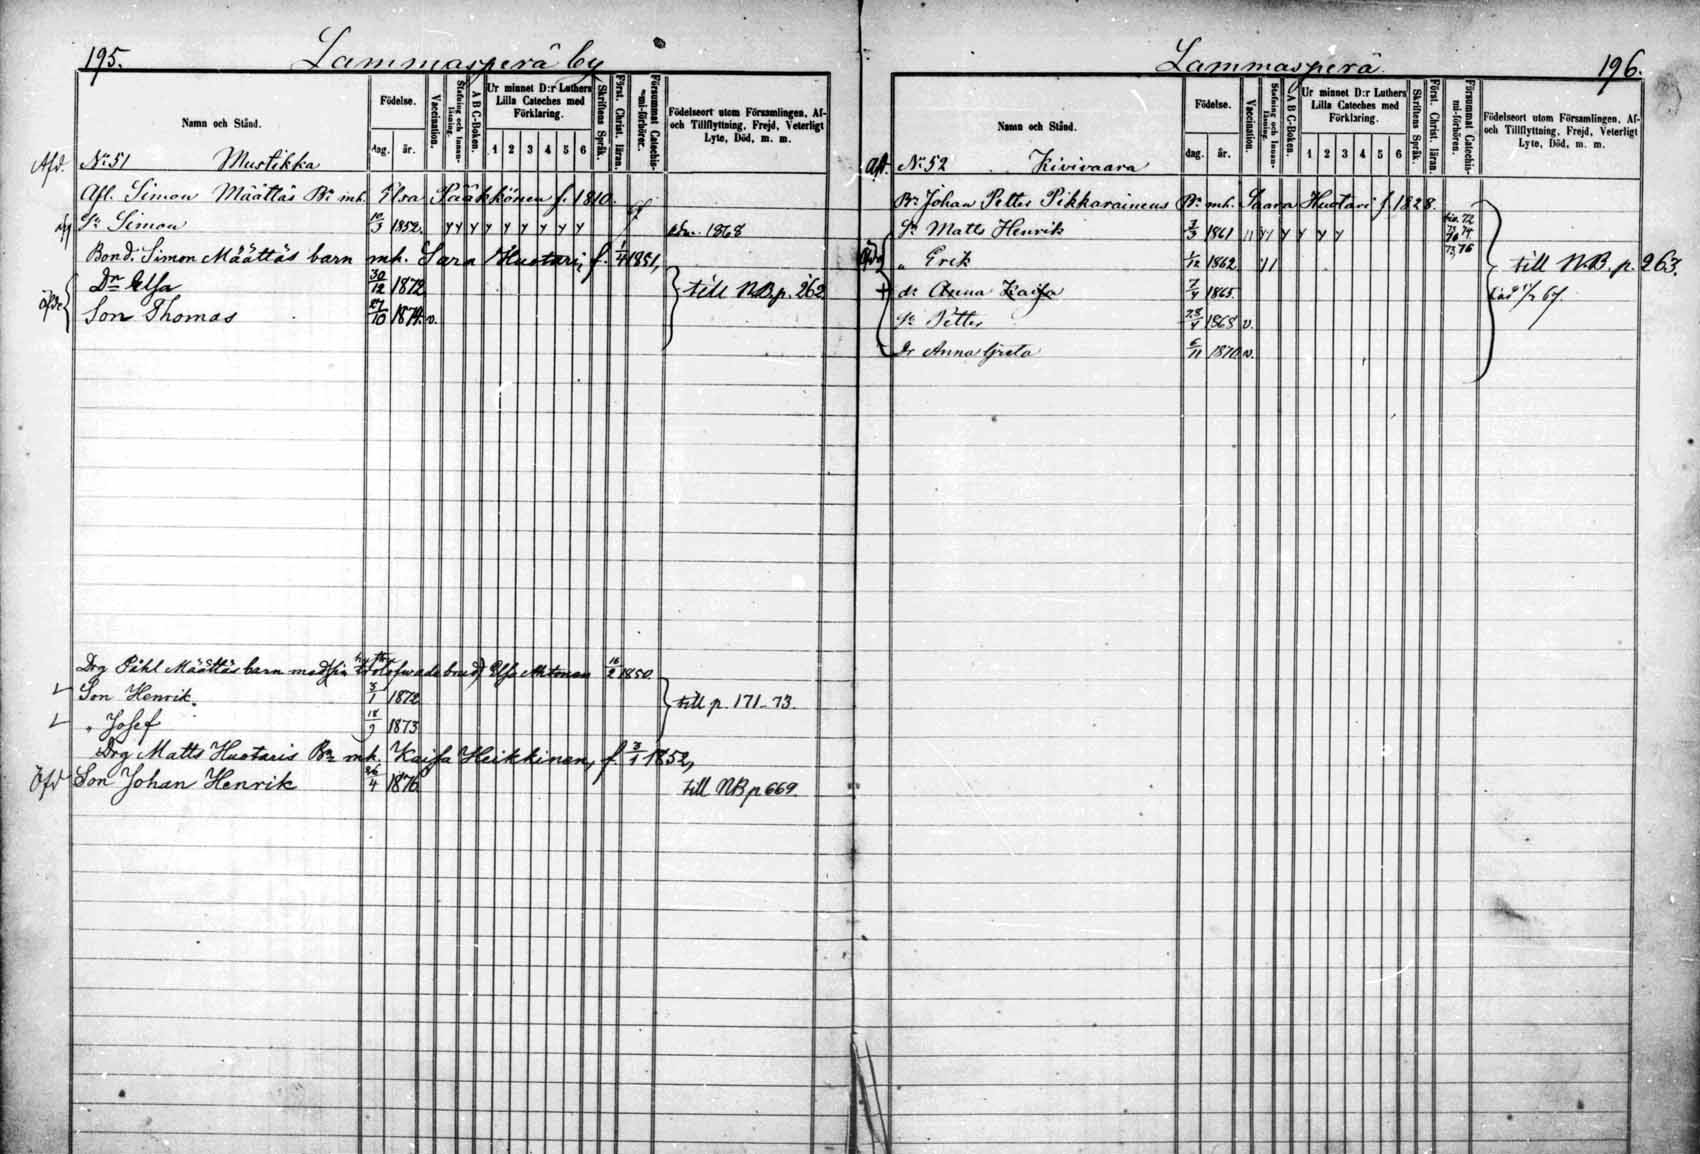 195. Lammasperä by
Namn och Stånd.
Födelse.
dag. år.
Vaccination.
Stafning och Innan-läsning.
A B C-Boken.
Ur minnet D:r Luthers Lilla Cateches med Förklaring.
1 2 3 4 5 6
Skriftens Språk.
Först. Christ. läran.
Försummat Catechis-mi-förhören.
Födelseort utom Församlingen, Af- och Tillflyttning, Frejd, Veterligt Lyte, Död, m. m.
Afd. No 51 Mustikka
Afl. Simon Määttäs Br mh. Pääkkönen f. 1810.
Sn Simon 10/3 1852. 1868
Bond. Simon Määttäs barn mh. Sara Huotari, f. 1/4 1851,
Dr Elsa 30/12 1872 till N.B. p. 262
Son Thomas 27/10 1874. v.
Drg Påhl Määttäs barn med sin trolofwade brud Elsa Ahtonen 16/2 1850.
Son Henrik. 3/1 1872 till p. 171-73.
" Josef 18/9 1873
Drg Matts Huotaris Br mh. Kaisa Heikkinen, f. 3/1 1852,
Öfd Son Johan Henrik 26/4 1876 till NB p 669.
Lammasperä 196.
Namn och Stånd.
Födelse.
dag. år.
Vaccination.
Stafning och Innan-läsning.
A B C-Boken.
Ur minnet D:r Luthers Lilla Cateches med Förklaring.
1 2 3 4 5 6
Skriftens Språk.
Först. Christ. läran.
Försummat Catechis-mi-förhören.
Födelseort utom Församlingen, Af- och Tillflyttning, Frejd, Veterligt Lyte, Död, m. m.
Afd. No 52 Kivivaara
Br Johan Petter Pikkarainens Br mh. Saara Huotari f. 1828.
Sn Matts Henrik 3/3 1861
" Erik 1/12 1862 till N.B. p. 263.
+ dr Anna Kaisa 7/4 1865.
Sn Petter 28/4 1868 v.
Dr Anna Greta 6/11 1870 v.